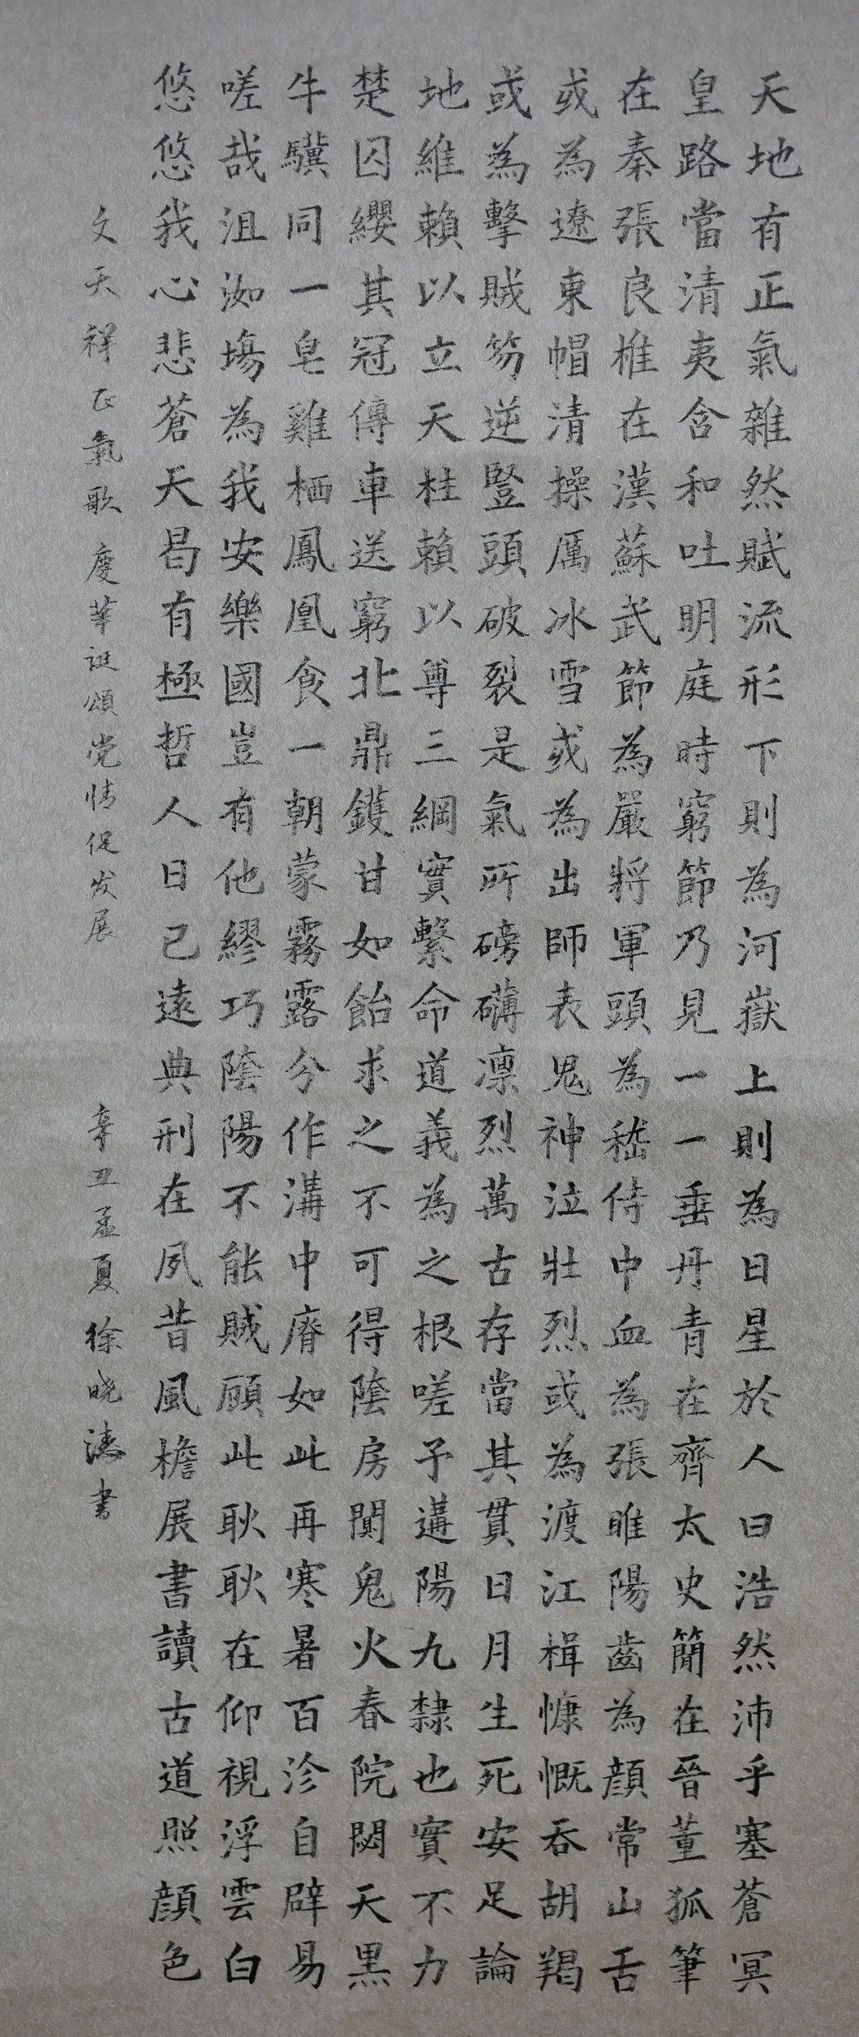 天地有正氣雜然賦流形下則為河嶽上則為日星於人曰浩然沛乎塞蒼冥
皇路當清夷含和吐明庭時窮節乃見一一垂丹青在齊太史簡在晉董狐筆
在秦張良椎在漢蘇武節為嚴將軍頭為嵇侍中血為張睢陽齒為顏常山舌
或為遼東帽清操厲冰雪或為出師表鬼神泣壯烈或為渡江楫慷慨吞胡羯
或為擊賊笏逆豎頭破裂是氣所磅礴凛烈萬古存當其貫日月生死安足論
地維賴以立天柱賴以尊三綱實繫命道義為之根嗟予遘陽九隸也實不力
楚囚纓其冠傳車送窮北鼎鑊甘如飴求之不可得陰房闃鬼火春院閟天黑
牛驥同一皂雞栖鳳凰食一朝蒙霧露兮作溝中瘠如此再寒暑百沴自辟易
嗟哉沮洳場為我安樂國豈有他繆巧陰陽不能賊顾此耿耿在仰視浮雲白
悠悠我心悲蒼天曷有極哲人日已遠典刑在夙昔風檐展書讀古道照顏色
文天祥正氣歌 慶華誕頌党情促发展 辛丑孟夏徐晓涛書